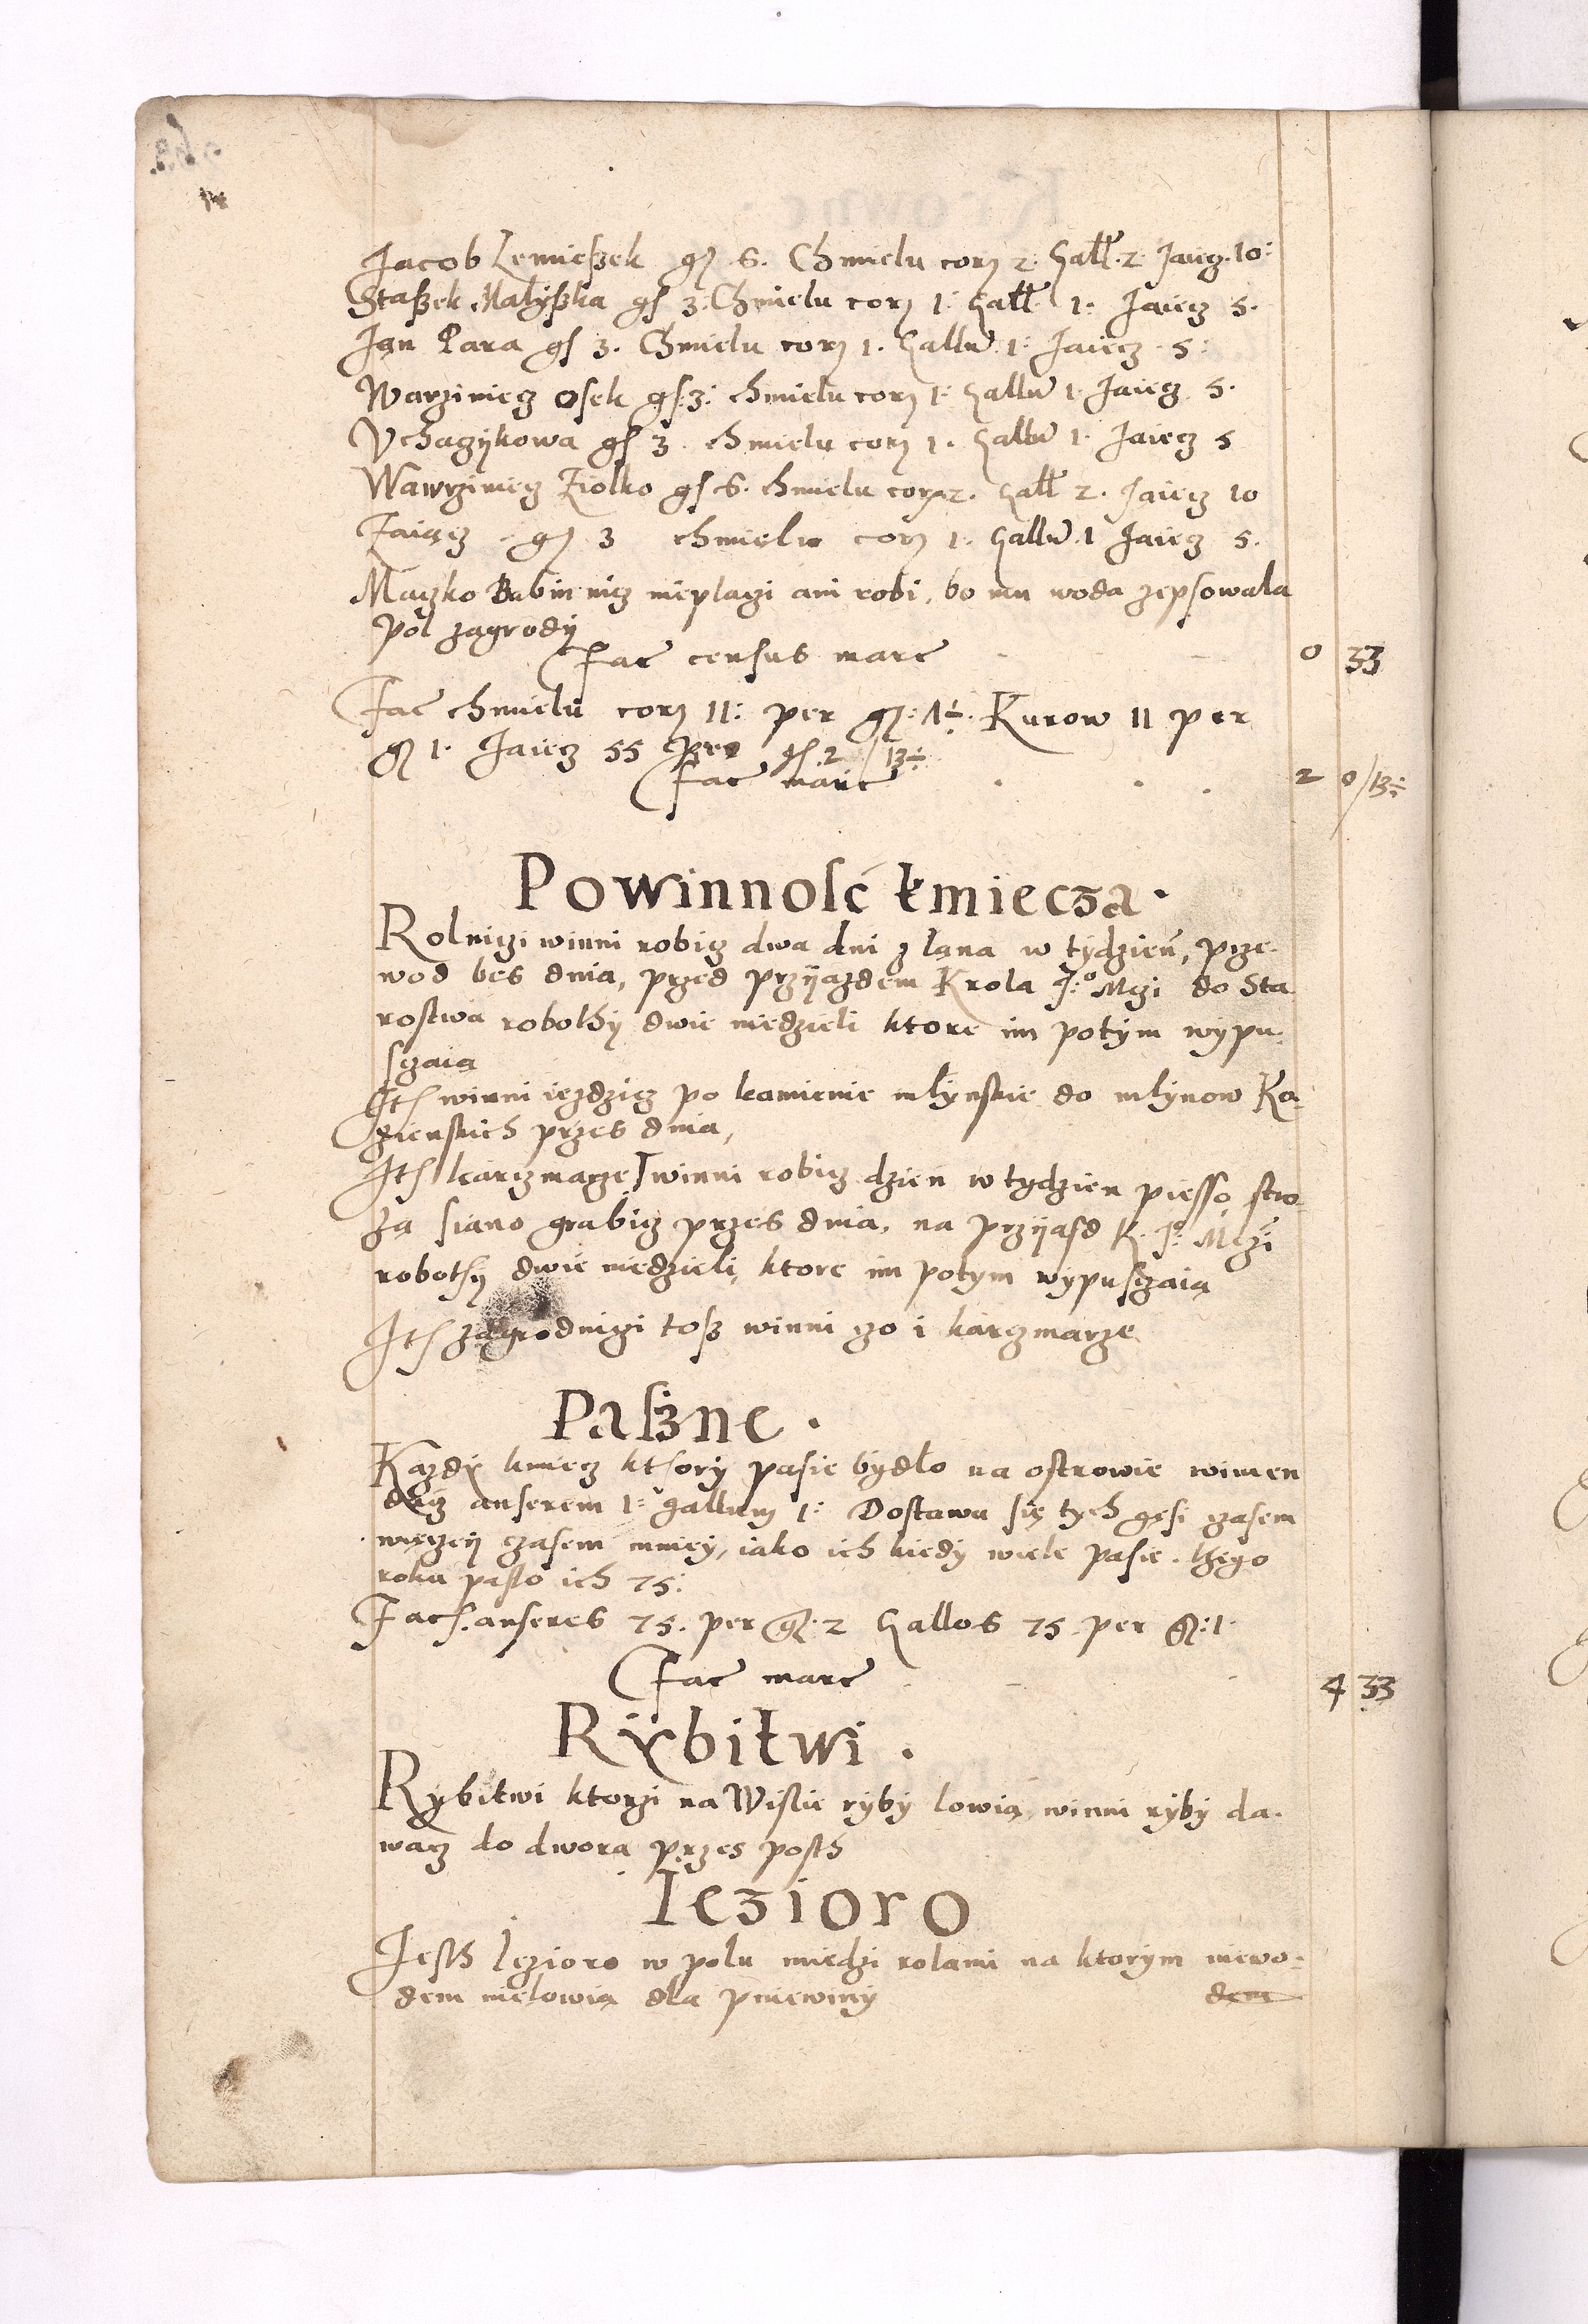 Jacob Lemieszek gr 6. Chmielu corz 2. Gall. 2. Jaiecz. 10:
Staszek Malyszka gs 3. Chmielu corz 1: Gall 1: Jaiecz 5.
Jan Para gs 3. Chmielu corz 1. Gallu 1: Jaiecz 5:
Warziniecz Osek gs: 3: chmielu corz 1: Gallu 1. Jaiecz 5.
Vchaczykowa gs 3. chmielu corz 1. Gallu 1. Jaiecz 5
Wawrziniecz Ziolko gs 6. chmielu corz 2. Gall 2. Jaiecz 10
Zaiącz gr 3 chmielu corz 1. Gallu 1 Jaiecz 5.
Maczko Babinnicz nieplaczi ani robi, bo mu woda zepsowala
pol zagrody
Fac census marc 0 33
Fac chmielu corz 11: per gr: 1÷. Kurow 11 per
gr 1. Jaiecz 55 per gs. 2 / 13÷
fac marc 2 0/13÷
Powinnosć kmiecza.
Rolniczi winni robicz dwa dni z łana w tydzień, prze-
wod bes dnia, przed przyjazdem Krola J:º Mczi do Sta
rostwa robothy dwie niedzieli ktore im potym wypu-
sczaią
Its winni iezdzicz po kamienie młynskie do młynow Ko-
zienskich przes dnia,
Its karczmarze winni robicz dzień w tydzien piesso, stro-
żą siano grabicz przes dnia, na przyjasd K. Jº: Mczi
robothy dwie niedzieli, ktore im potym wypusczaią
Its zagrodniczi tosz winni czo i karczmarze
Paszne.
Kazdy kmiecz kthory pasie bydło na ostrowie winien
dacz anserem 1: gallum 1: Dostawa się tych gęsi czasem
więczey czasem mniey, iako ich kiedy wiele pasie. thego
roku pasło ich 75:
Facs. anseres 75. per gr. 2 Gallos 75 per gr: 1.
fac marc 4 33
Rybitwi.
Rybitwi ktorzi na Wislie ryby lowią, winni ryby da-
wacz do dwora przes posth
Iezioro
Jesth Jezioro w polu miedzi rolami na ktorym niewo-
dem nielowią dla pniewiny dem